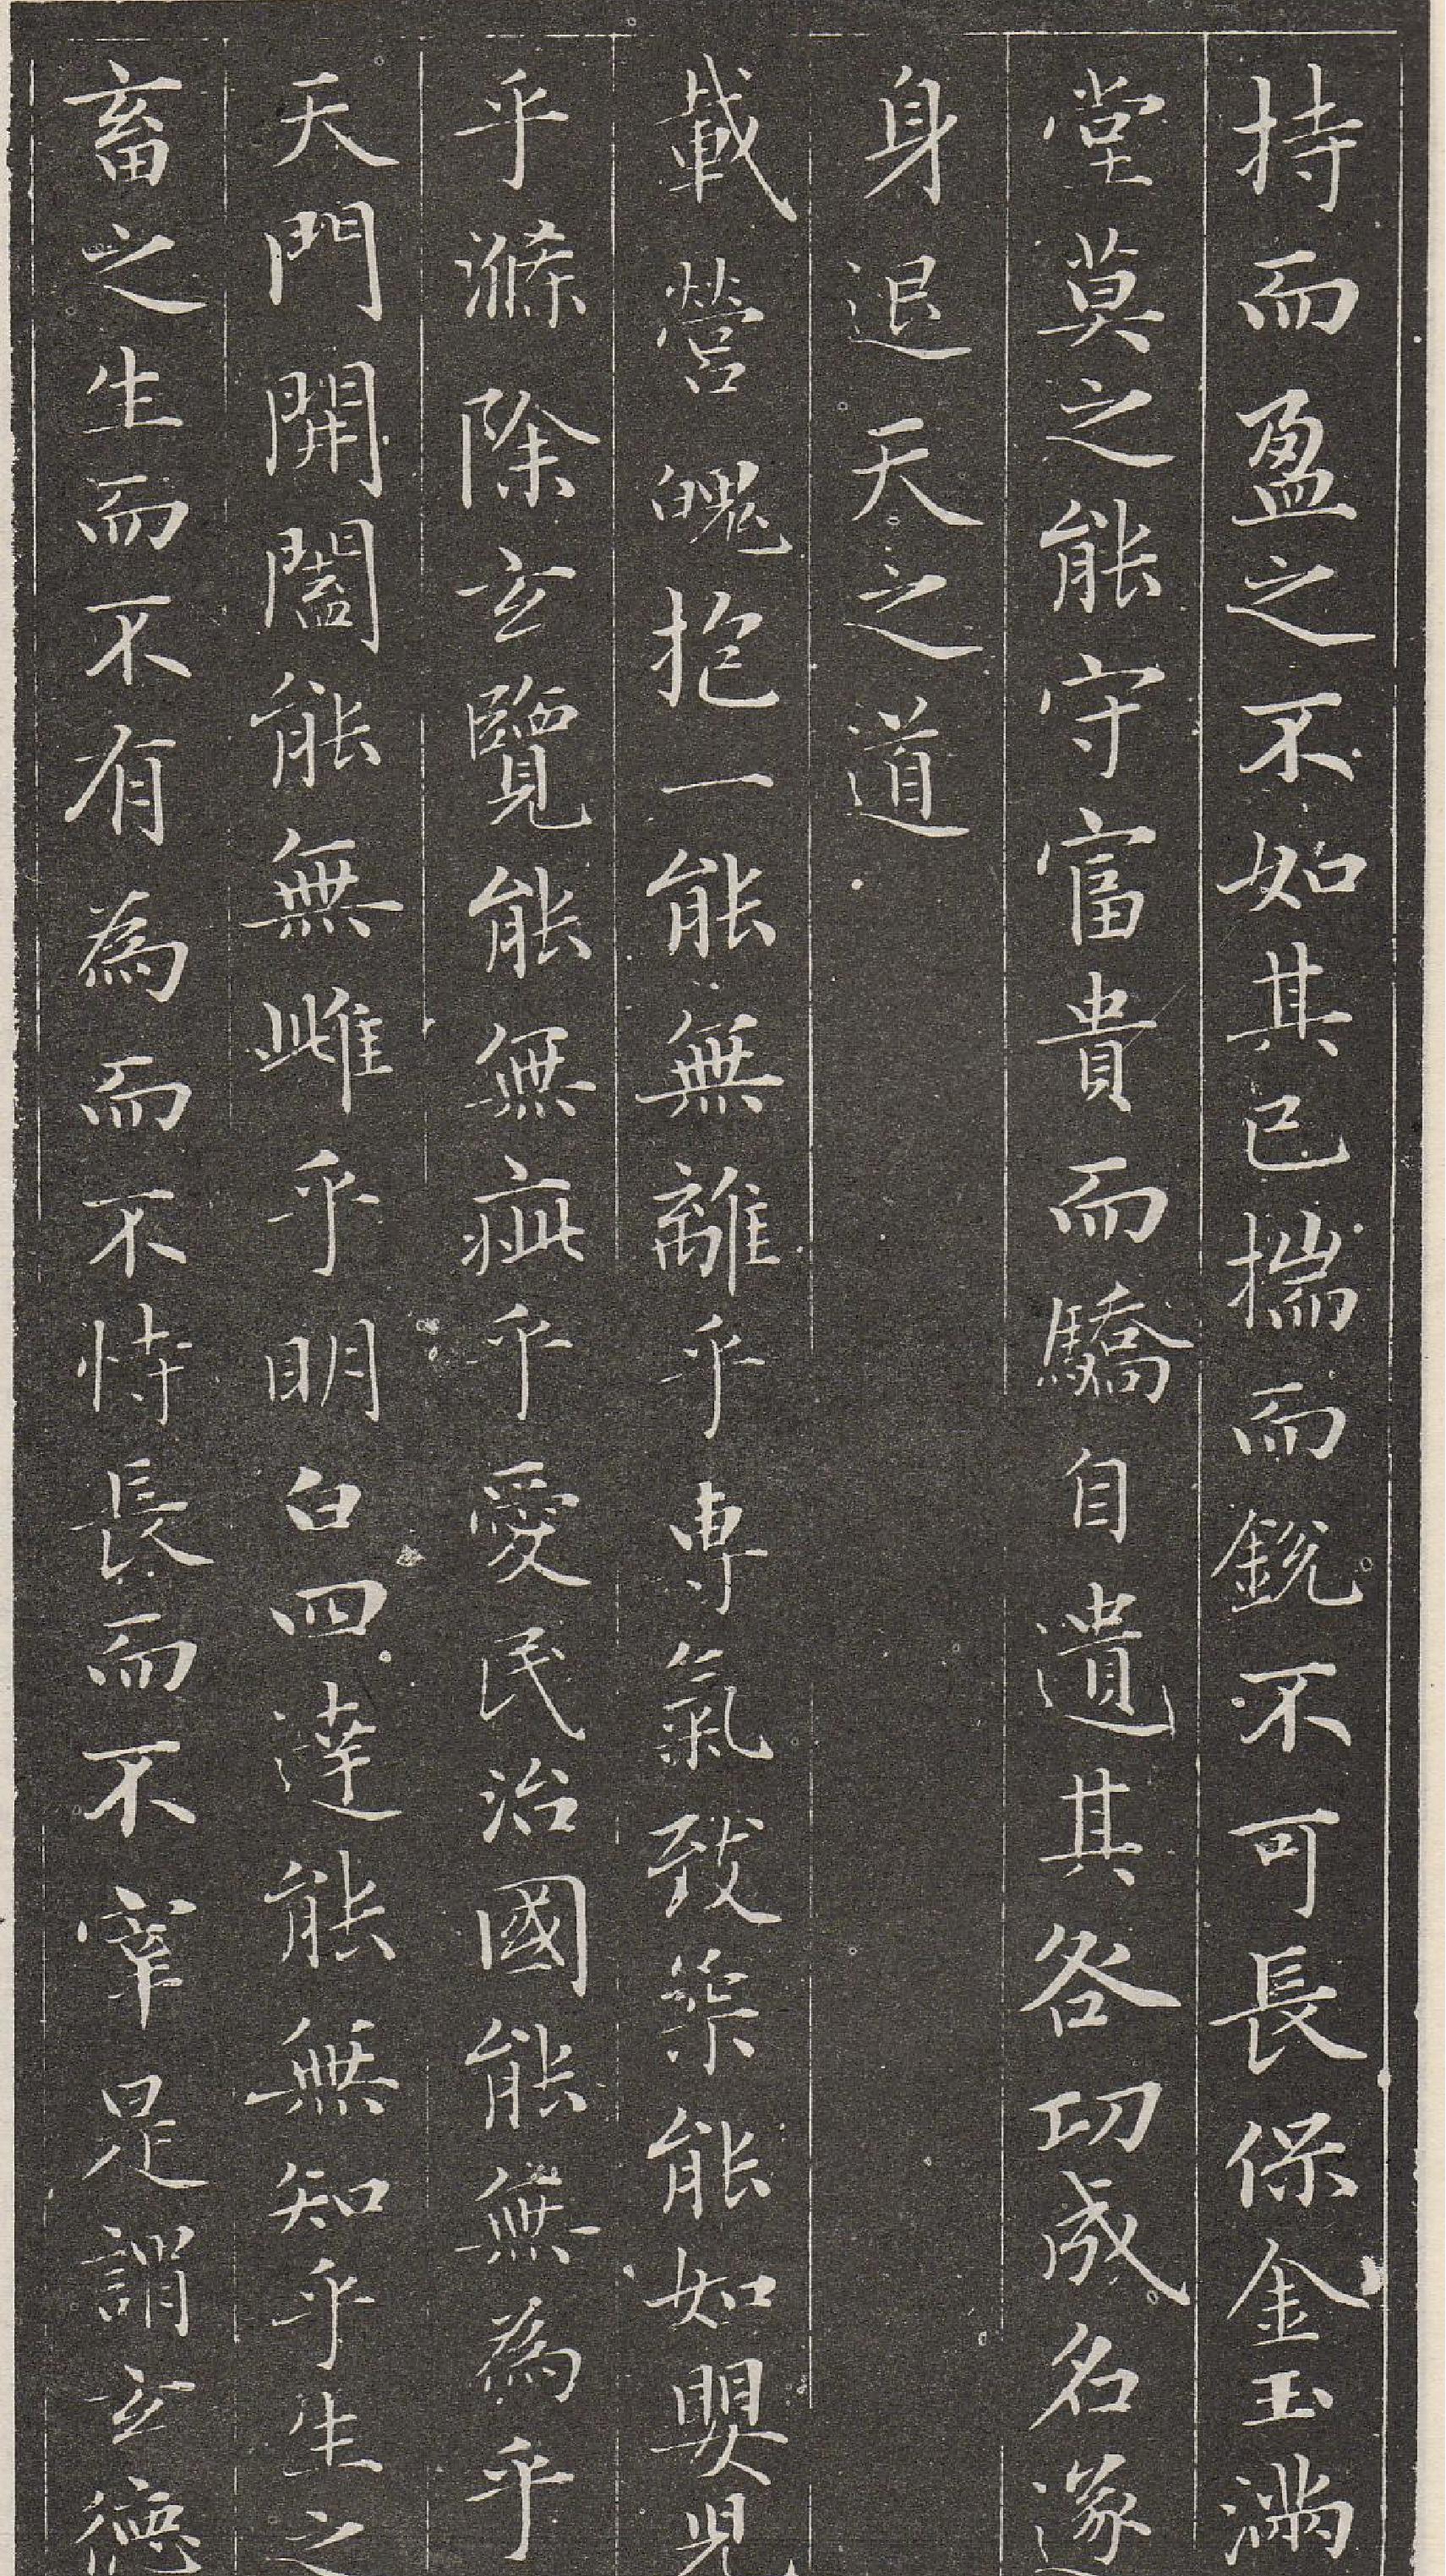 持而盈之不如其已揣而銳不可長保金玉滿
堂莫之能守富貴而驕自遺其咎功成名遂
身退天之道
載營魄抱一能無離乎專氣致柔能如嬰兒
乎滌除玄覽能無疵乎愛民治國能無為乎
天門開闔能無雌乎明白四達能無知乎生之
畜之生而不有為而不恃長而不宰是謂玄德